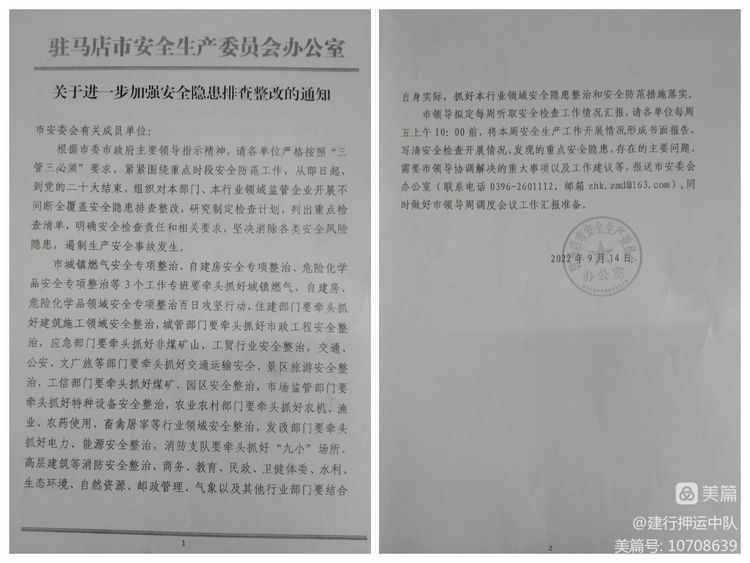 驻马店市安全生产委员会办公室
关于进一步加强安全隐患排查整改的通知
市安委会有关成员单位：
根据市委市政府主要领导指示精神，请各单位严格按照“三
管三必须”要求，紧紧围绕重点时段安全防范工作，从即日起，
到党的二十大结束，组织对本部门、本行业领域监管企业开展不
间断全覆盖安全隐患排查整改，研究制定检查计划，列出重点检
查清单，明确安全检查责任和相关要求，坚决消除各类安全风险
隐患，遏制生产安全事故发生。
市城镇燃气安全专项整治、自建房安全专项整治、危险化学
品安全专项整治等3个工作专班要牵头抓好城镇燃气，自建房、
危险化学品领域安全专项整治百日攻坚行动，住建部门要牵头抓
好建筑施工领域安全整治，城管部门要牵头抓好市政工程安全整
治，应急部门要牵头抓好非煤矿山、工贸行业安全整治，交通、
公安、文广旅等部门要牵头抓好交通运输安全、景区旅游安全整
治，工信部门要牵头抓好煤矿、园区安全整治，市场监管部门要
牵头抓好特种设备安全整治，农业农村部门要牵头抓好农机、渔
业、农药使用、畜禽屠宰等行业领域安全整治，发改部门要牵头
抓好电力、能源安全整治，消防支队要牵头抓好“九小”场所、
高层建筑等消防安全整治，商务、教育、民政、卫健体委、水利、
生态环境、自然资源、邮政管理、气象以及其他行业部门要结合
1
自身实际，抓好本行业领域安全隐患整治和安全防范措施落实。
市领导拟定每周听取安全检查工作情况汇报，请各单位每周
五上午10：00前，将本周安全生产工作开展情况形成书面报告，
写清安全检查开展情况、发现的重点安全隐患，存在的主要问题，
需要市领导协调解决的重大事项以及工作建议等，报送市安委会
办公室（联系电话0396-2601112，邮箱zhk.zmd@163.com），同
时做好市领导周调度会议工作汇报准备。
驻马店市安全生产委员会
2022年9月14日
办公室
2
美篇
@建行押运中队
美篇号: 10708639